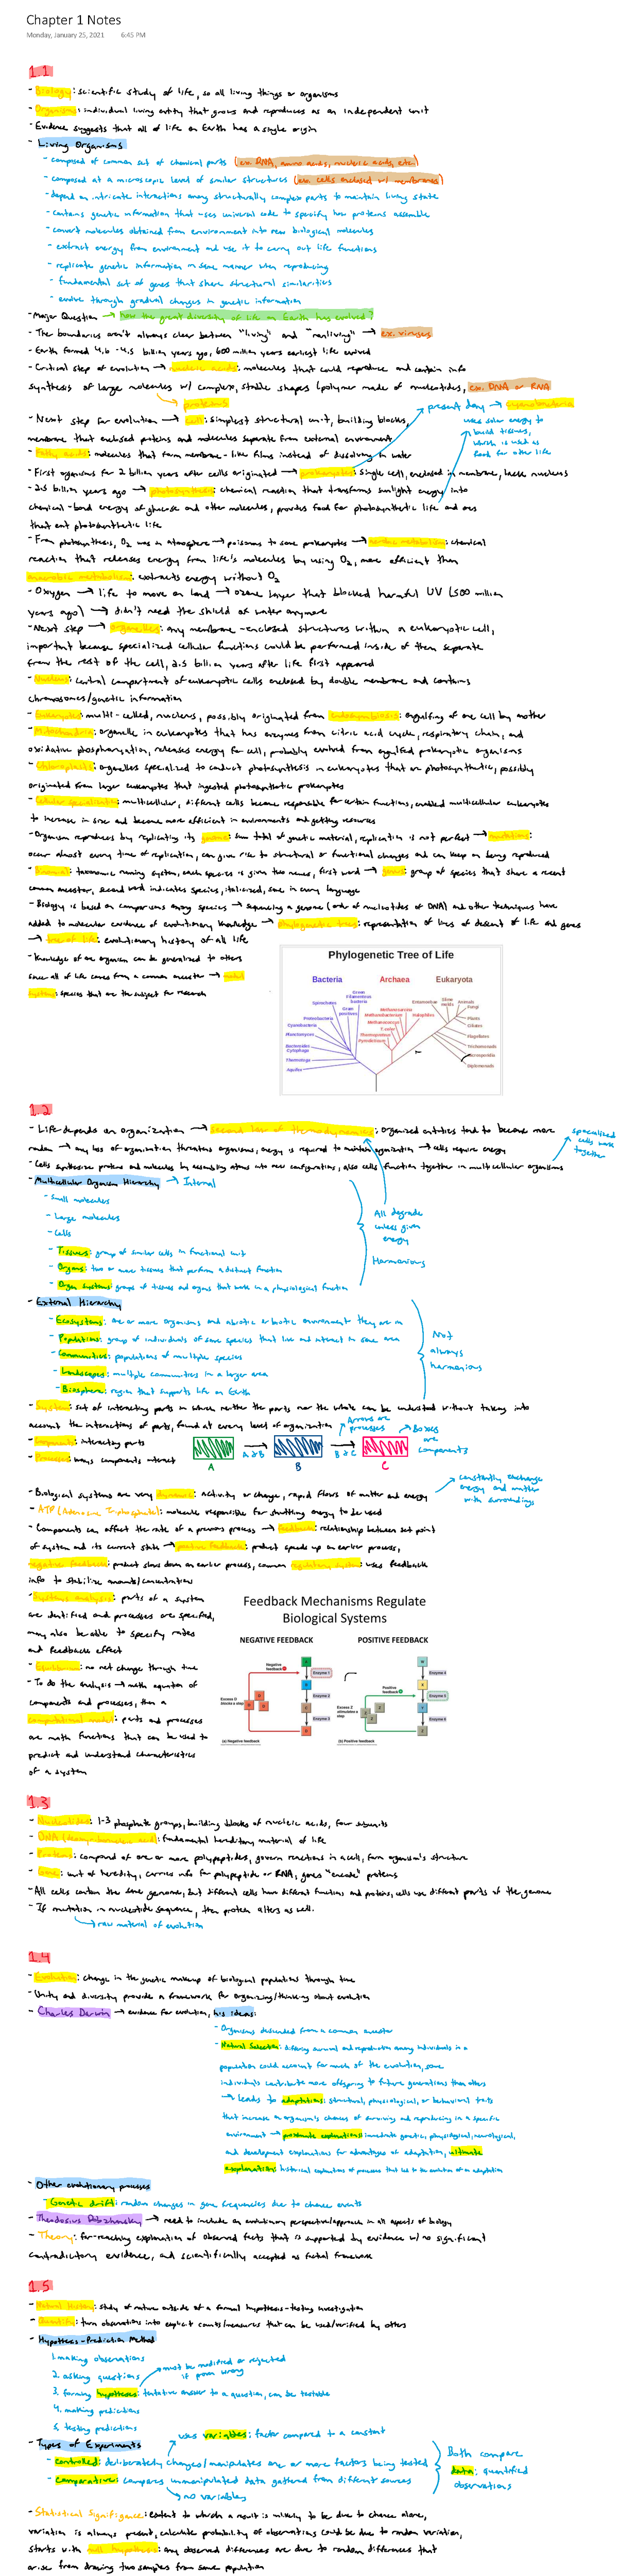 Chapter 1 Notes
Monday, January 25, 2021 6:45 PM
1.1
- Biology: scientific study of life, so all living things or organisms
- Organism: individual living entity that grows and reproduces as an independent unit
- Evidence suggests that all of life on Earth has a single origin
- Living Organisms
- composed of common set of chemical parts (ex. DNA, amino acids, nucleic acids, etc.)
- composed at a microscopic level of similar structures (ex. cells enclosed w/ membranes)
- depend on intricate interactions among structurally complex parts to maintain living state
- contains genetic information that uses universal code to specify how proteins assemble
- convert molecules obtained from environment into new biological molecules
- extract energy from environment and use it to carry out life functions
- replicate genetic information in same manner when reproducing
- fundamental set of genes that share structural similarities
- evolve through gradual changes in genetic information
- Major Question → how the great diversity of life on Earth has evolved?
- The boundaries aren't always clear between "living" and "nonliving" → ex. viruses
- Earth formed 4.6 - 4.5 billion years ago, 600 million years earliest life evolved
- Critical step of evolution → nucleic acids: molecules that could reproduce and contain info
synthesis of large molecules w/ complex, stable shapes (polymer made of nucleotides, ex. DNA or RNA
proteins
present day → cyanobacteria
uses solar energy to
build tissues,
which is used as
food for other life
- Next step for evolution → cell: simplest structural unit, building blocks,
membrane that enclosed proteins and molecules separate from external environment
- Fatty acids: molecules that form membrane-like films instead of dissolving in water
- First organisms for 2 billion years after cells originated → prokaryotes: single cell, enclosed in membrane, lack nucleus
- 2.5 billion years ago → photosynthesis: chemical reaction that transforms sunlight energy into
chemical-bond energy of glucose and other molecules, provides food for photosynthetic life and ones
that eat photosynthetic life
- From photosynthesis, O2 was in atmosphere → poisonous to some prokaryotes → aerobic metabolism: chemical
reaction that releases energy from life's molecules by using O2, more efficient than
anaerobic metabolism: extracts energy without O2
- Oxygen → life to move on land → ozone layer that blocked harmful UV (500 million
years ago) → didn't need the shield of water anymore
- Next step → organelles: any membrane-enclosed structures within a eukaryotic cell,
important because specialized cellular functions could be performed inside of them separate
from the rest of the cell, 2.5 billion years after life first appeared
- Nucleus: central compartment of eukaryotic cells enclosed by double membrane and contains
chromosomes/genetic information
- Eukaryotes: multi-celled, nucleus, possibly originated from endosymbiosis: engulfing of one cell by another
- Mitochondria: organelle in eukaryotes that has enzymes from citric acid cycle, respiratory chain, and
oxidative phosphorylation, releases energy for cell, probably evolved from engulfed prokaryotic organisms
- Chloroplasts: organelles specialized to conduct photosynthesis in eukaryotes that are photosynthetic, possibly
originated from larger eukaryotes that ingested photosynthetic prokaryotes
- Cellular specialization: multicellular, different cells became responsible for certain functions, enabled multicellular eukaryotes
to increase in size and become more efficient in environments and getting resources
- Organism reproduces by replicating its genome: sum total of genetic material, replication is not perfect → mutations:
occur almost every time of replication, can give rise to structural or functional changes and can keep on being reproduced
- Binomial: taxonomic naming system, each species is given two names, first word → genus: group of species that share a recent
common ancestor, second word indicates species, italicized, same in every language
- Biology is based on comparisons among species → sequencing a genome (order of nucleotides of DNA) and other techniques have
added to molecular evidence of evolutionary knowledge → phylogenetic trees: representation of lines of descent of life and genes
→ tree of life: evolutionary history of all life
- Knowledge of one organism can be generalized to others
since all of life comes from a common ancestor → model
systems: species that are the subject for research
Phylogenetic Tree of Life
Bacteria Archaea Eukaryota
Spirochetes
Green Filamentous bacteria
Gram positives
Proteobacteria
Cyanobacteria
Planctomyces
Bacteroides Cytophaga
Thermotoga
Aquifex
Methanosarcina
Methanobacterium
Methanococcus
T. celer
Thermoproteus
Pyrodicticum
Halophiles
Entamoebae
Slime molds
Animals
Fungi
Plants
Ciliates
Flagellates
Trichomonads
Microsporidia
Diplomonads
1.2
- Life depends on organization → second law of thermodynamics: organized entities tend to become more
random → any loss of organization threatens organisms, energy is required to maintain organization → cells require energy
- Cells synthesize proteins and molecules by assembling atoms into new configurations, also cells function together in multicellular organisms
specialized
cells work
together
- Multicellular Organism Hierarchy → Internal
- Small molecules
- Large molecules
- Cells
- Tissues: group of similar cells in functional unit
- Organs: two or more tissues that perform a distinct function
- Organ systems: groups of tissues and organs that work in a physiological function
All degrade
unless given
energy
Harmonious
- External Hierarchy
- Ecosystems: one or more organisms and abiotic or biotic environment they are in
- Populations: group of individuals of same species that live and interact in same area
- Communities: populations of multiple species
- Landscapes: multiple communities in a larger area
- Biosphere: region that supports life on Earth
Not
always
harmonious
- System: set of interacting parts in which neither the parts nor the whole can be understood without taking into
account the interactions of parts, found at every level of organization
- Components: interacting parts
- Processes: ways components interact
Arrows are
processes
Boxes
are
components
A A→B B B→C C
- Biological systems are very dynamic: activity or change, rapid flows of matter and energy
constantly exchange
energy and matter
with surroundings
- ATP (Adenosine Triphosphate): molecule responsible for shuttling energy to be used
- Components can affect the rate of a previous process → feedback: relationship between set point
of system and its current state → positive feedback: product speeds up an earlier process,
negative feedback: product slows down an earlier process, common regulatory system: uses feedback
info to stabilize amounts/concentration
- Systems analysis: parts of a system
are identified and processes are specified,
may also be able to specify rates
and feedbacks effect
- Equilibrium: no net change through time
- To do the analysis → math equation of
components and processes, then a
computational model: parts and processes
are math functions that can be used to
predict and understand characteristics
of a system
Feedback Mechanisms Regulate
Biological Systems
NEGATIVE FEEDBACK POSITIVE FEEDBACK
Negative feedback
Enzyme 1
Enzyme 2
Enzyme 3
Excess D blocks a step
(a) Negative feedback
Positive feedback
Enzyme 4
Enzyme 5
Enzyme 6
Excess Z stimulates a step
(b) Positive feedback
1.3
- Nucleotides: 1-3 phosphate groups, building blocks of nucleic acids, four subunits
- DNA (deoxyribonucleic acid): fundamental hereditary material of life
- Proteins: compound of one or more polypeptides, govern reactions in a cell, form organism's structure
- Gene: unit of heredity, carries info for polypeptide or RNA, genes "encode" proteins
- All cells contain the same genome, but different cells have different functions and proteins, cells use different parts of the genome
- If mutation in nucleotide sequence, then protein alters as well.
→ raw material of evolution
1.4
- Evolution: change in the genetic makeup of biological populations through time
- Unity and diversity provide a framework for organizing/thinking about evolution
- Charles Darwin → evidence for evolution, his ideas:
- Organisms descended from a common ancestor
- Natural Selection: differing survival and reproduction among individuals in a
population could account for much of the evolution, some
individuals contribute more offspring to future generations than others
→ leads to adaptations: structural, physiological, or behavioral traits
that increase an organism's chances of surviving and reproducing in a specific
environment → proximate explanations: immediate genetic, physiological, neurological,
and development explanations for advantages of adaptation, ultimate
explanations: historical explanations of processes that led to the evolution of an adaptation
- Other evolutionary processes
- Genetic drift: random changes in gene frequencies due to chance events
- Theodosius Dobzhansky → need to include an evolutionary perspective/approach in all aspects of biology
- Theory: far-reaching explanation of observed facts that is supported by evidence w/ no significant
contradictory evidence, and scientifically accepted as factual framework
1.5
- Natural History: study of nature outside of a formal hypothesis-testing investigation
- Quantify: turn observations into explicit counts/measures that can be used/verified by others
- Hypothesis-Prediction Method
1. making observations
2. asking questions
3. forming hypotheses: tentative answer to a question, can be testable
4. making predictions
5. testing predictions
must be modified or rejected
if proven wrong
- Types of Experiments
uses variables: factor compared to a constant
- controlled: deliberately changes/manipulates one or more factors being tested
- comparative: compares unmanipulated data gathered from different sources
→ no variables
Both compare
data: quantified
observations
- Statistical Significance: extent to which a result is unlikely to be due to chance alone,
variation is always present, calculate probability of observations could be due to random variation,
starts with null hypothesis: any observed differences are due to random differences that
arise from drawing two samples from same population